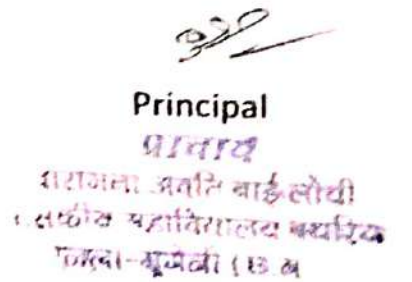 Principal
प्राचार्य
अवंति बाई लोधी
महाविद्यालय पथरिया
जिला-मुंगेली ( छ.ग